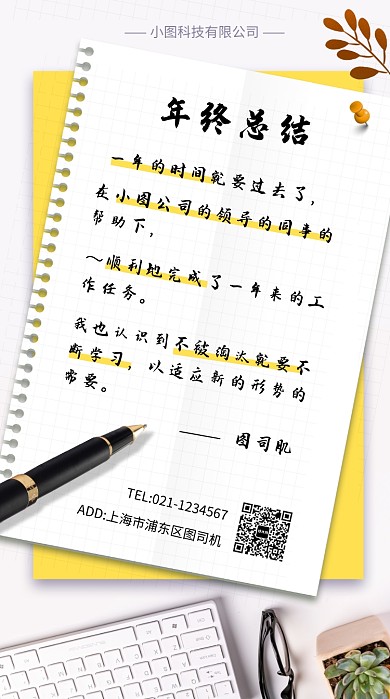 小图科技有限公司
年终总结
一年的时间就要过去了，
在小图公司的领导的同事的
帮助下，
～顺利地完成了一年来的工
作任务。
我也认识到不被淘汰就要不
断学习，以适应新的形势的
需要。
—— 图司肌
TEL:021-1234567
ADD:上海市浦东区图司机